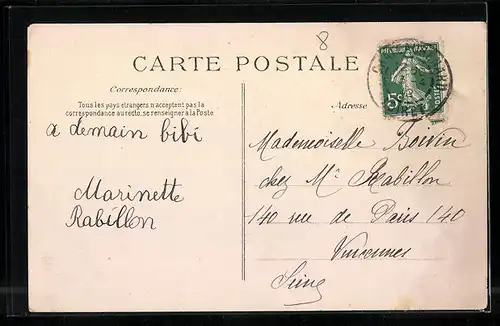 8
CARTE POSTALE
Correspondance:
Tous les pays étrangers n'acceptent pas la
correspondance au recto, se renseigner à la Poste
a demain bibi
Marinette
Rabillon
Adresse
REPUBLIQUE FRANÇAISE
5c
Mademoiselle Boivin
chez Mr Rabillon
140 rue de Paris 140
Vincennes
Seine